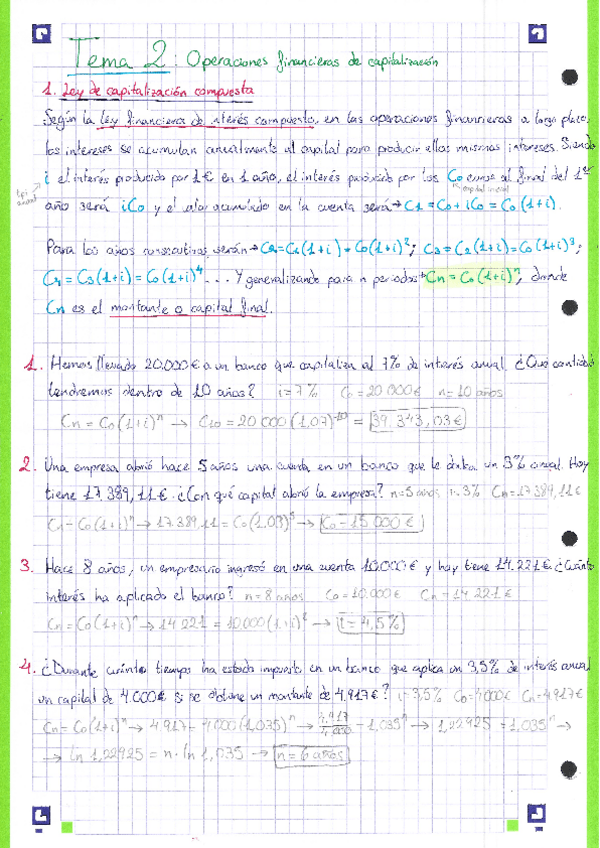 Tema 2: Operaciones financieras de capitalización
1. Ley de capitalización compuesta
Según la ley financiera de interés compuesto, en las operaciones financieras a largo plazo,
los intereses se acumulan anualmente al capital para producir ellos mismos intereses. Siendo
i el interés producido por 1€ en 1 año, el interés producido por los Co euros al final del 1er
anual
capital inicial
año será iCo y el valor acumulado en la cuenta será → C1 = Co + iCo = Co(1+i).
Para los años consecutivos serán → C2=C1(1+i) = Co(1+i)²; C3 = C2(1+i)=Co(1+i)³;
C4 = C3(1+i) = Co(1+i)⁴ ... Y generalizando para n periodos → Cn = Co(1+i)ⁿ, donde
Cn es el montante o capital final.
1. Hemos llevado 20.000€ a un banco que capitaliza al 7% de interés anual. ¿Qué cantidad
tendremos dentro de 10 años? i=7% Co=20000€ n=10 años
Cn = Co(1+i)ⁿ → C10 = 20000(1,07)¹⁰ = 39.343,03€
2. Una empresa abrió hace 5 años una cuenta en un banco que le daba un 3% anual. Hoy
tiene 17.389,11€. ¿Con qué capital abrió la empresa? n=5 años i=3% Cn=17389,11€
Cn = Co(1+i)ⁿ → 17.389,11 = Co(1,03)⁵ → Co = 15.000€
3. Hace 8 años, un empresario ingresó en una cuenta 10.000€ y hoy tiene 14.221€. ¿Cuánto
interés ha aplicado el banco? n=8 años Co=10.000€ Cn=14221€
Cn = Co(1+i)ⁿ → 14221 = 10000(1+i)⁸ → i=4,5%
4. ¿Durante cuánto tiempo ha estado impuesto en un banco que aplica un 3,5% de interés anual
un capital de 4.000€ si se obtiene un montante de 4.917€? i=3,5% Co=4000€ Cn=4917€
Cn = Co(1+i)ⁿ → 4.917 = 4000(1,035)ⁿ → 4.917/4.000 = 1,035ⁿ → 1,22925 = 1,035ⁿ →
→ ln 1,22925 = n · ln 1,035 → n = 6 años